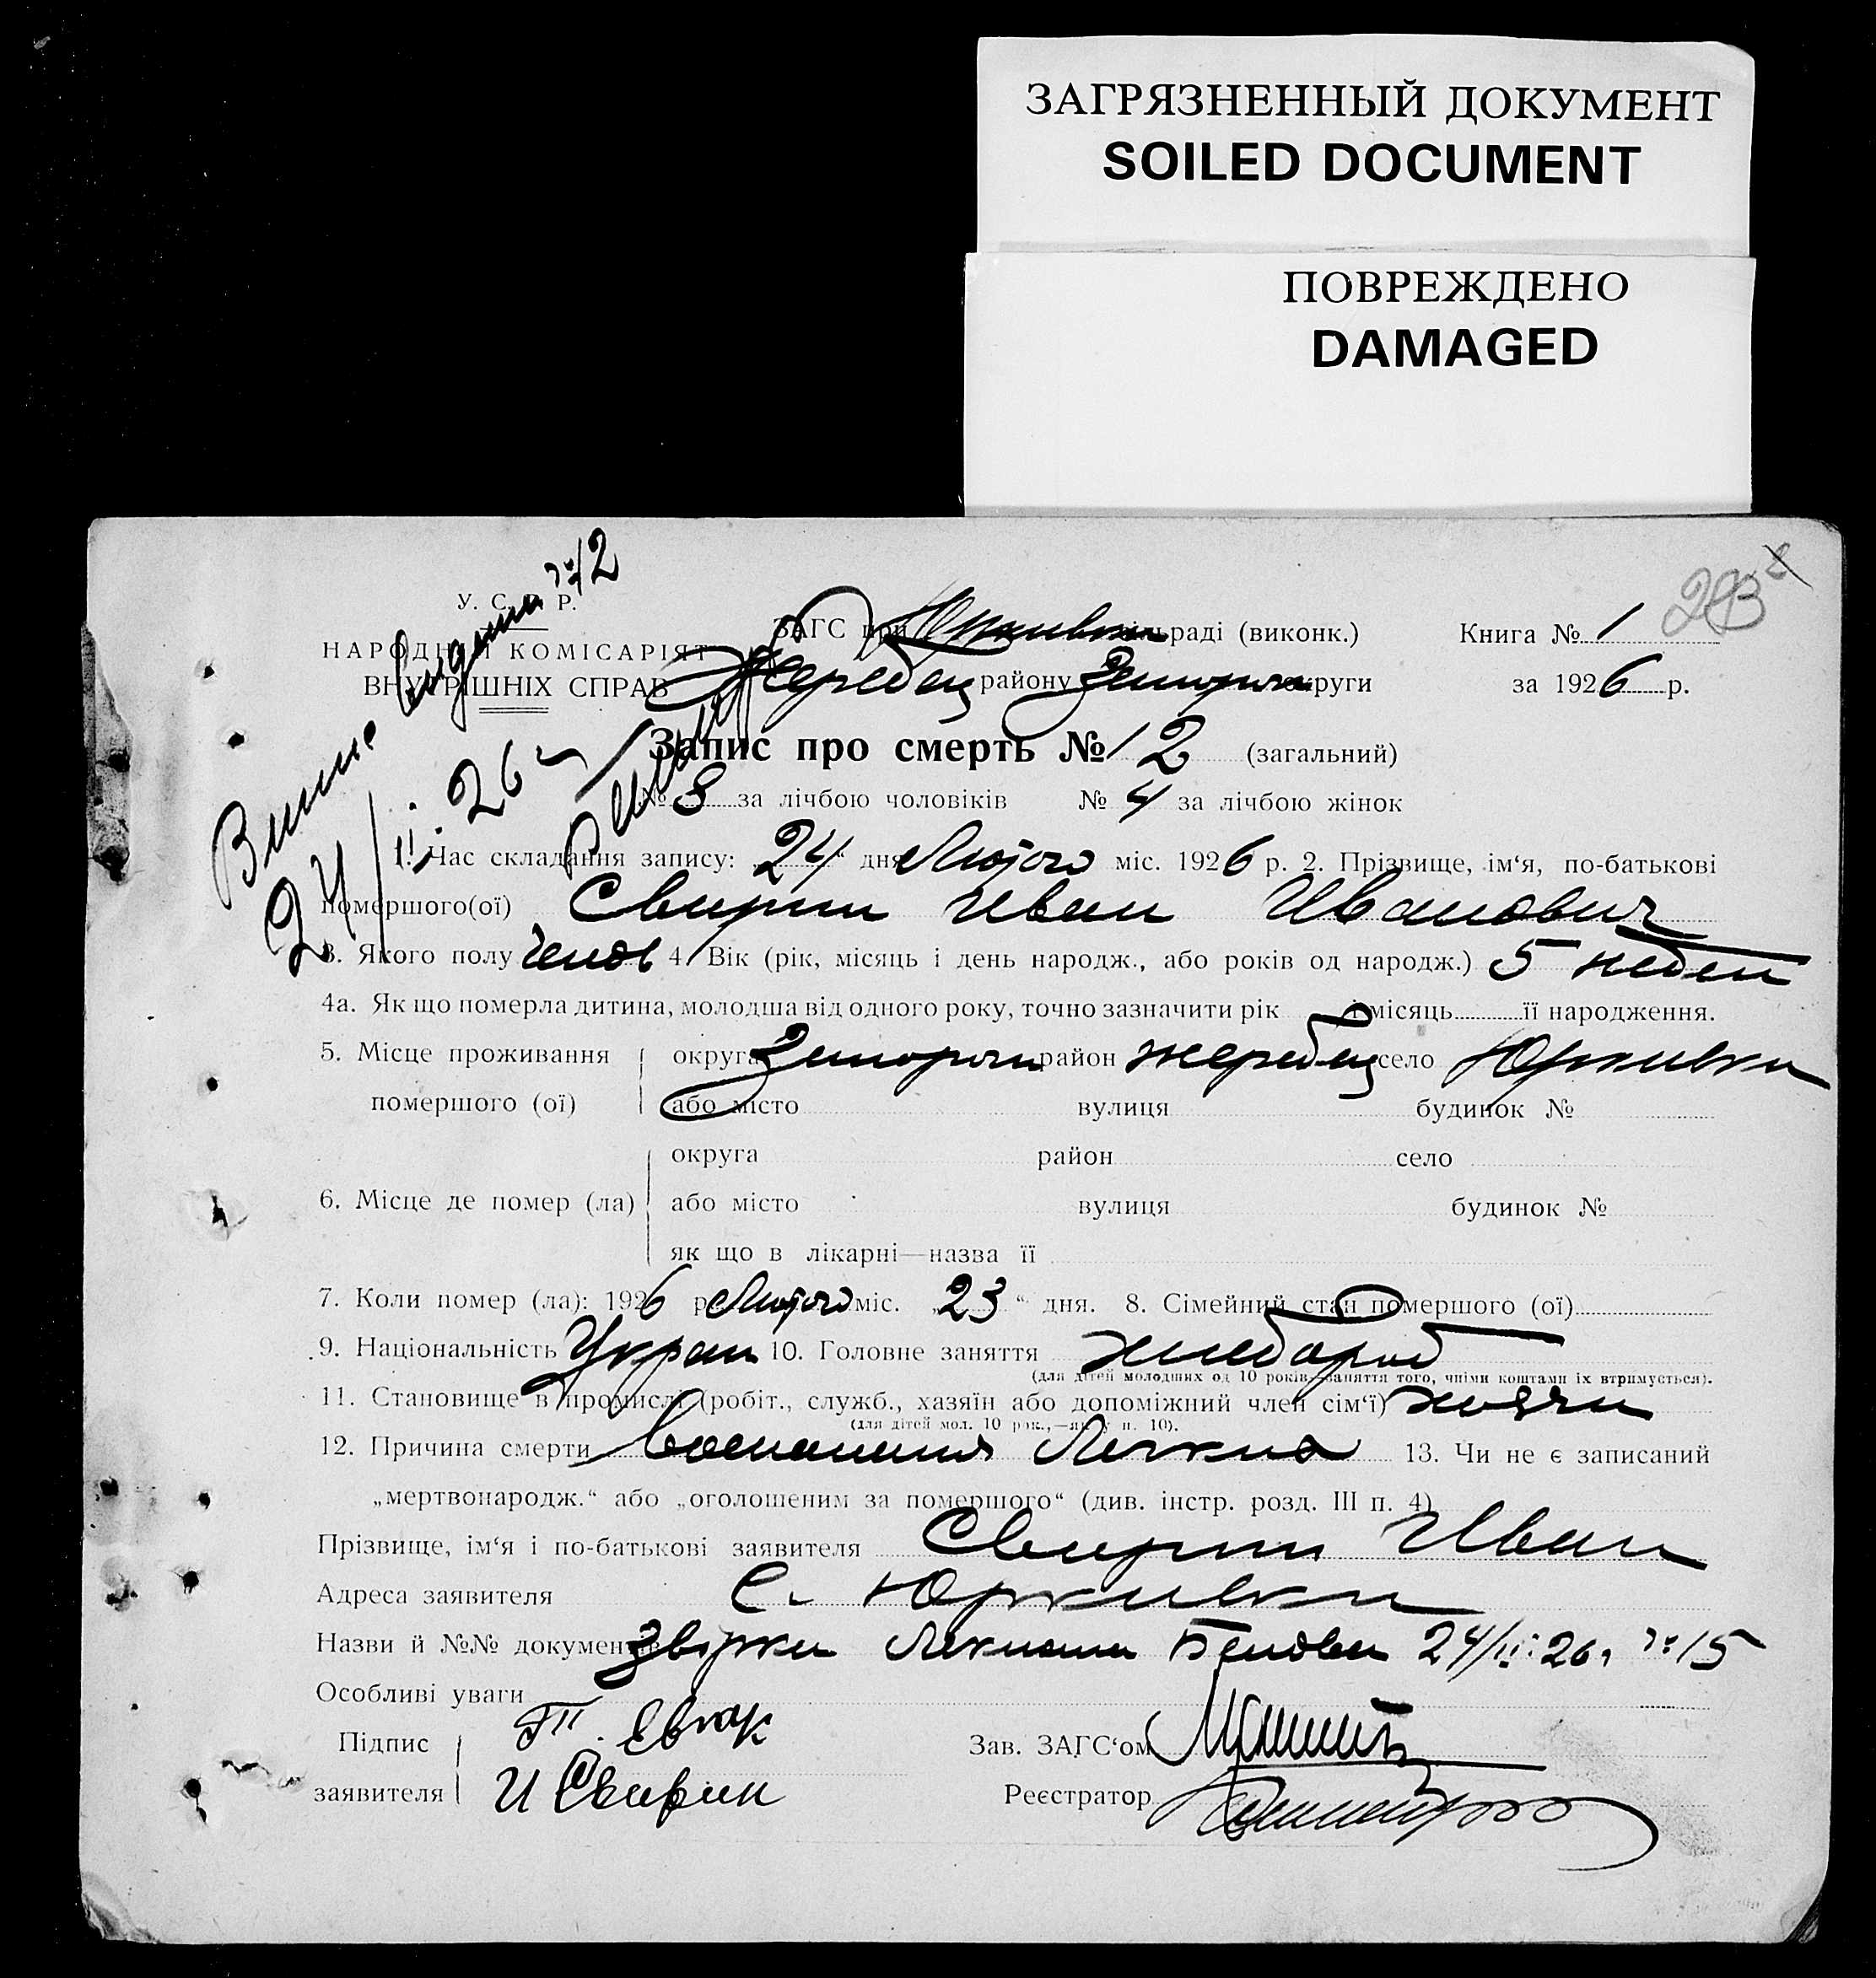 ЗАГРЯЗНЕННЫЙ ДОКУМЕНТ
SOILED DOCUMENT
ПОВРЕЖДЕНО
DAMAGED
У. С. Р. Р.
НАРОДНІЙ КОМІСАРІЯТ
ВНУТРІШНІХ СПРАВ
№ 12
24/II. 26
ЗАГС при Юрківськ сільраді (виконк.) Книга № 1
Жеребец району Запорож округи за 1926 р.
Запис про смерть № 12 (загальний)
№ 8 за лічбою чоловіків № 4 за лічбою жінок
1. Час складання запису: „24“ дня Лютого міс. 1926 р. 2. Прізвище, ім‘я, по-батькові
помершого(ої) Свирин Иван Иванович
3. Якого полу Челов 4. Вік (рік, місяць і день народж., або років од народж.) 5 недел
4а. Як що померла дитина, молодша від одного року, точно зазначити рік і місяць її народження.
5. Місце проживання помершого (ої) округа Запорож район Жеребец село Юркивки
або місто вулиця будинок №
округа район село
6. Місце де помер (ла) або місто вулиця будинок №
як що в лікарні—назва її
7. Коли помер (ла): 1926 р. Лютого міс. „23“ дня. 8. Сімейний стан помершого (ої)
9. Національність Украин 10. Головне заняття хлебороб
(для дітей молодших од 10 років,—заняття того, чиїми коштами їх втримується).
11. Становище в промислі (робіт., служб., хазяїн або допоміжний член сім‘ї) хозяин
(для дітей мол. 10 рок.,—як у п. 10).
12. Причина смерти Воспаления Легких 13. Чи не є записаний
„мертвонародж.“ або „оголошеним за помершого“ (див. інстр. розд. III п. 4)
Прізвище, ім‘я і по-батькові заявителя Свирин Иван
Адреса заявителя С. Юркивки
Назви й №№ документів 24/II. 26 г № 15
Особливі уваги
Підпис заявителя И Свирин
Зав. ЗАГС‘ом
Реєстратор